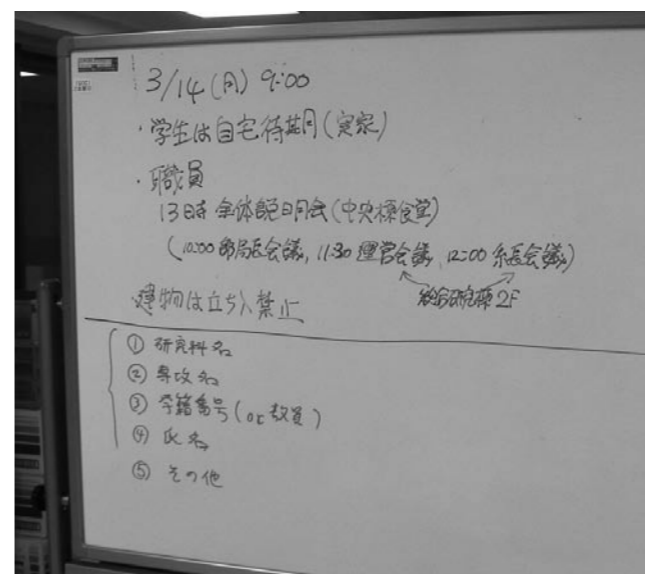 3/14(月) 9:00
・学生は自宅待期(実家)
・職員
13時 全体説明会(中央棟食堂)
(10:00 部局長会議, 11:30 運営会議, 12:00 系長会議)
総合研究棟 2F
・建物は立ち入禁止
① 研究科名
② 専攻名
③ 学籍番号(or教員)
④ 氏名
⑤ その他